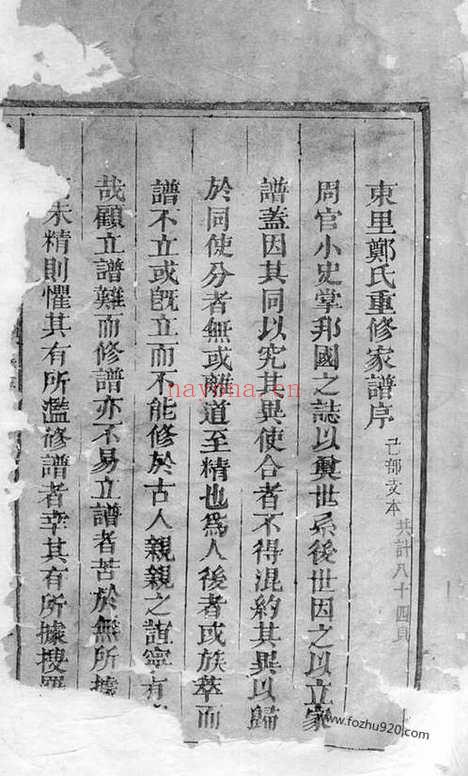 東里鄭氏重修家譜序
己部支本 共計八十四頁
周官小史掌邦國之誌以奠世系後世因之以立家
譜蓋因其同以究其異使合者不得混約其異以歸
於同使分者無或離道至精也爲人後者或族萃而
譜不立或旣立而不能修於古人親親之誼寧有
哉顧立譜難而修譜亦不易立譜者苦於無所據
未精則懼其有所濫修譜者幸其有所據搜羅
nayona.cn
www.fozhu920.com